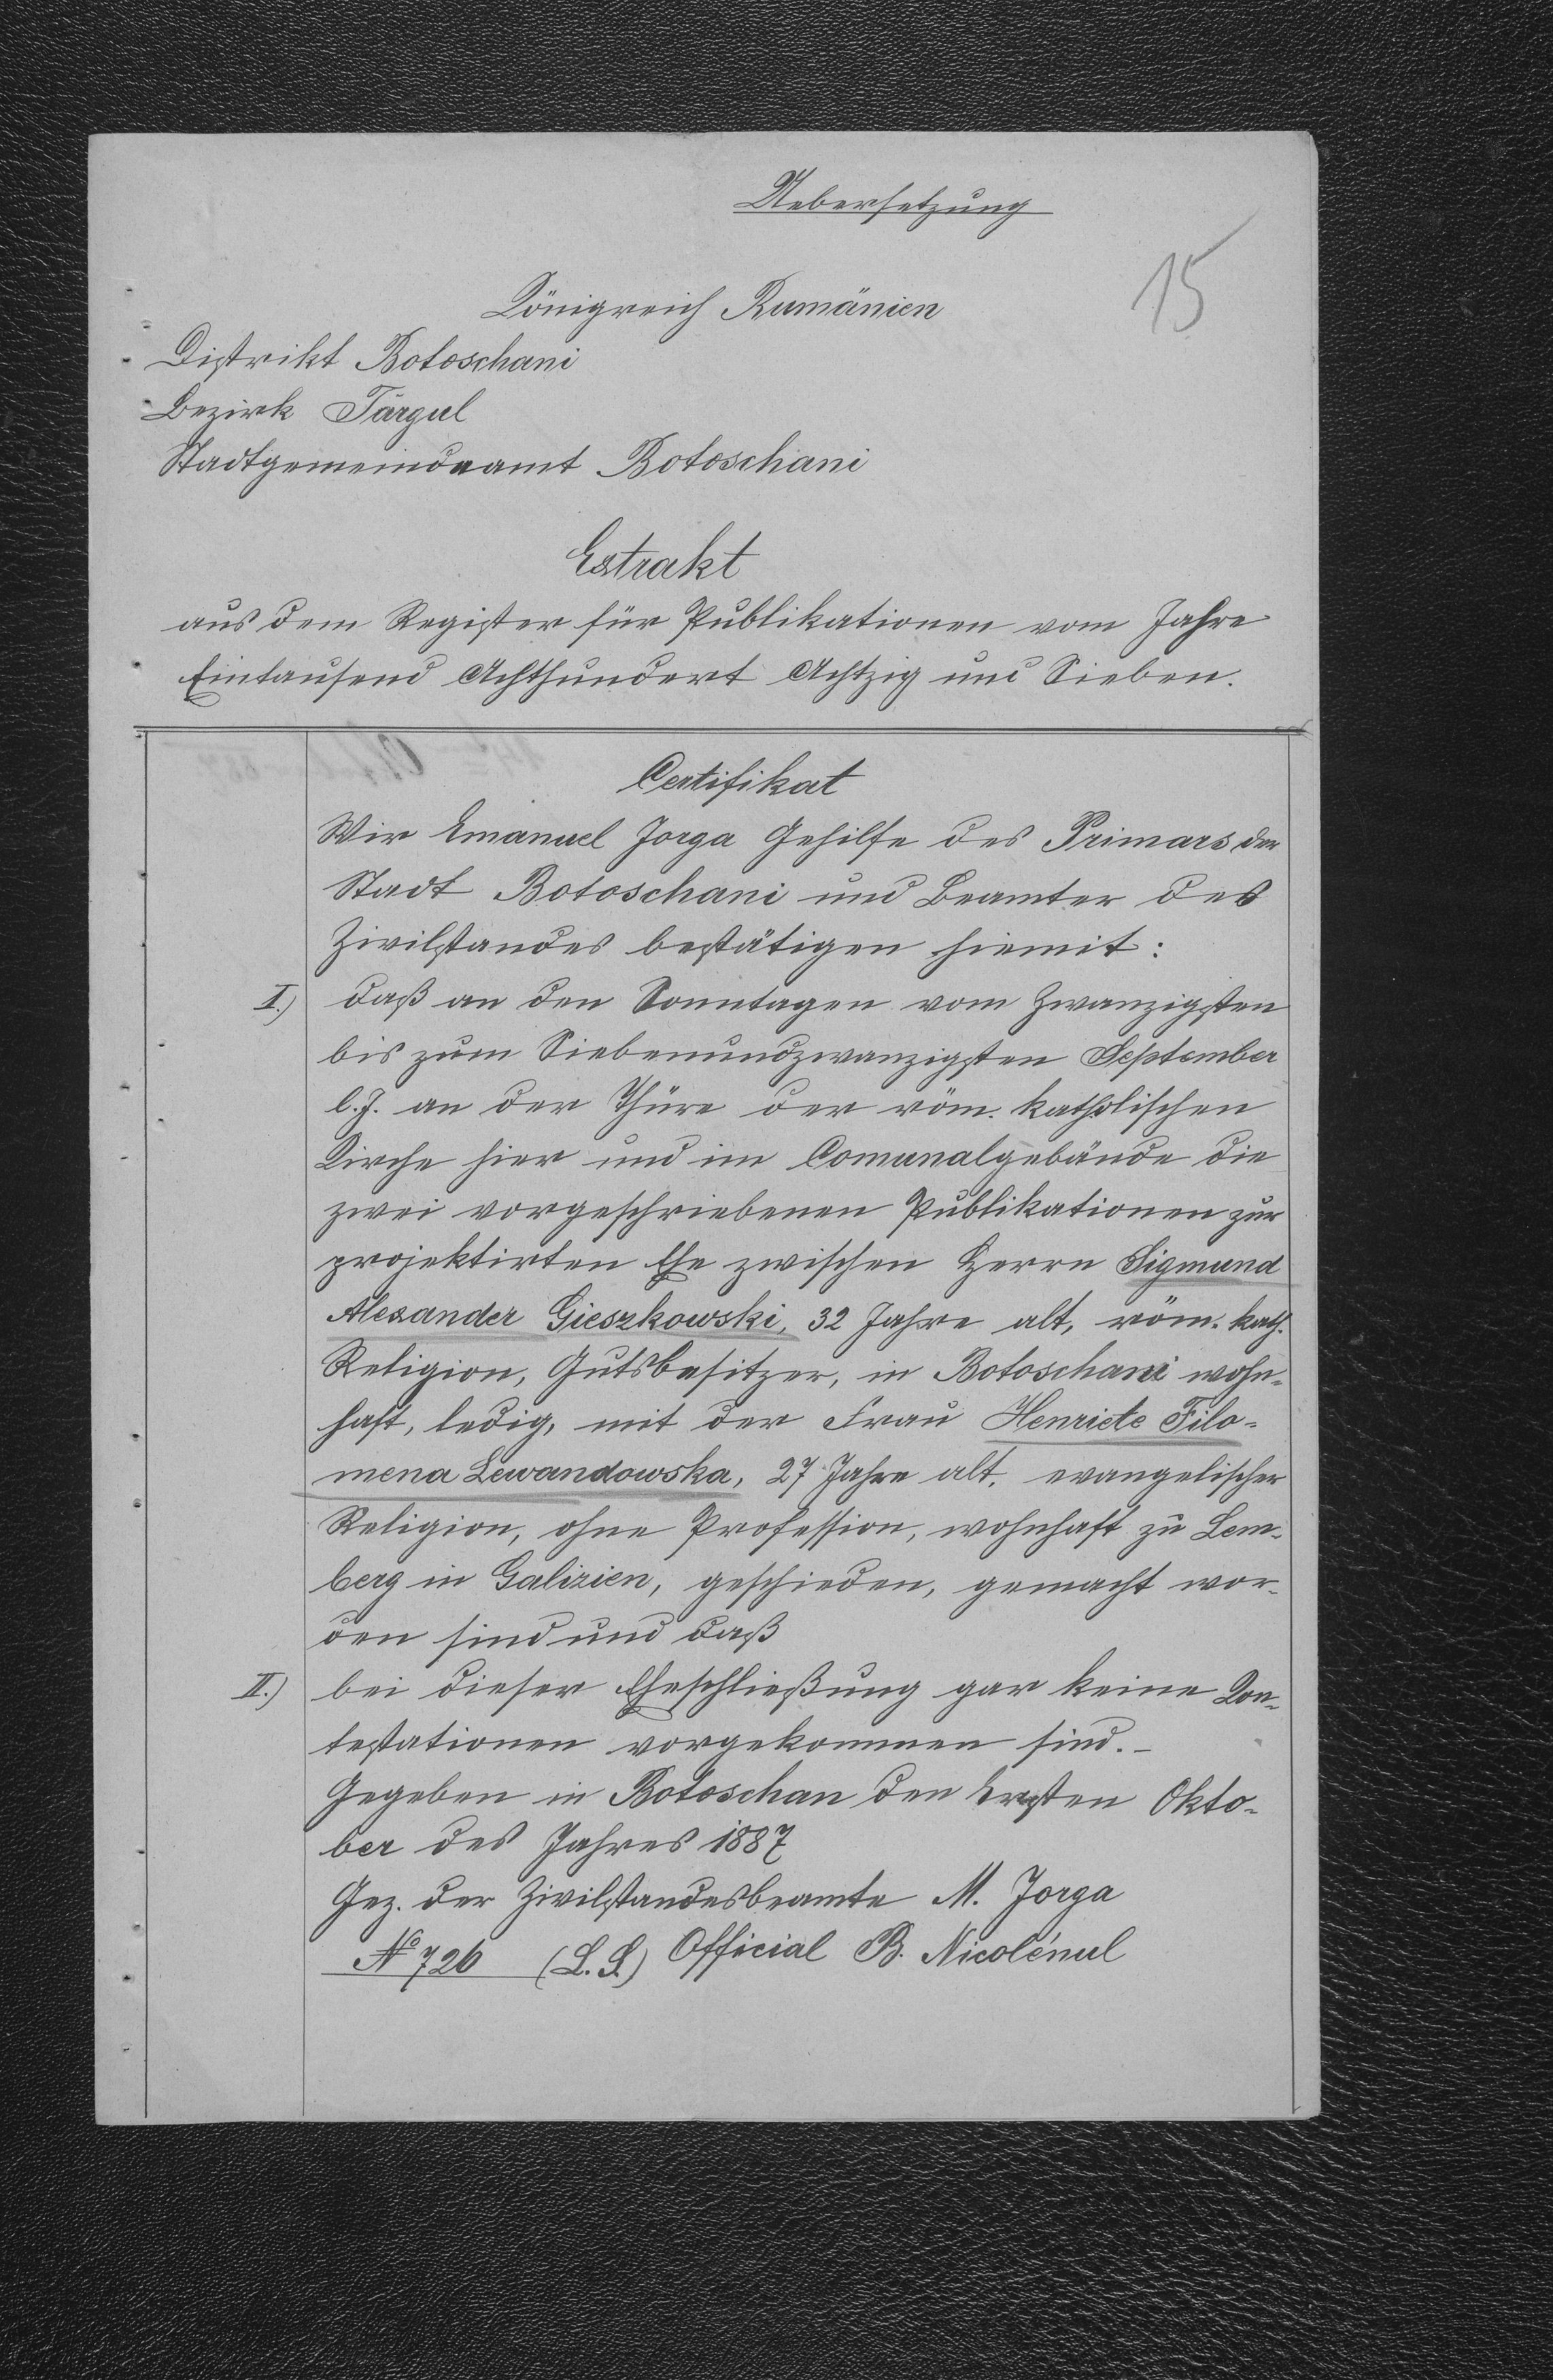 Uebersetzung
15
Königreich Rumänien
Distrikt Botoschani
Bezirk Târgul
Stadtgemeindeamt Botoschani
Extrakt
aus dem Register für Publikationen vom Jahre
Eintausend Achthundert Achtzig und Sieben.
Certifikat
Wir Emanuel Jorga Gehilfe des Primars der
Stadt Botoschani und Beamter des
Zivilstandes bestätigen hiemit:
I.) daß an den Sonntagen vom Zwanzigsten
bis zum Siebenundzwanzigsten September
l. J. an der Thüre der röm. katholischen
Kirche hier und im Comunalgebäude die
zwei vorgeschriebenen Publikationen zur
projektirten Ehe zwischen Herrn Sigmund
Alexander Gieszkowski, 32 Jahre alt, röm. kath.
Religion, Gutsbesitzer, in Botoschani wohn-
haft, ledig, mit der Frau Henriete Filo-
mena Lewandowska, 27 Jahre alt, evangelischer
Religion, ohne Profession, wohnhaft zu Lem-
berg in Galizien, geschieden, gemacht wor-
den sind und daß
II.) bei dieser Eheschließung gar keine Kon-
testationen vorgekommen sind.-
Gegeben in Botoschan den Ersten Okto-
ber des Jahres 1887
Gez. der Zivilstandesbeamte M. Jorga
No 726 (L. S.) Official B. Nicolénul